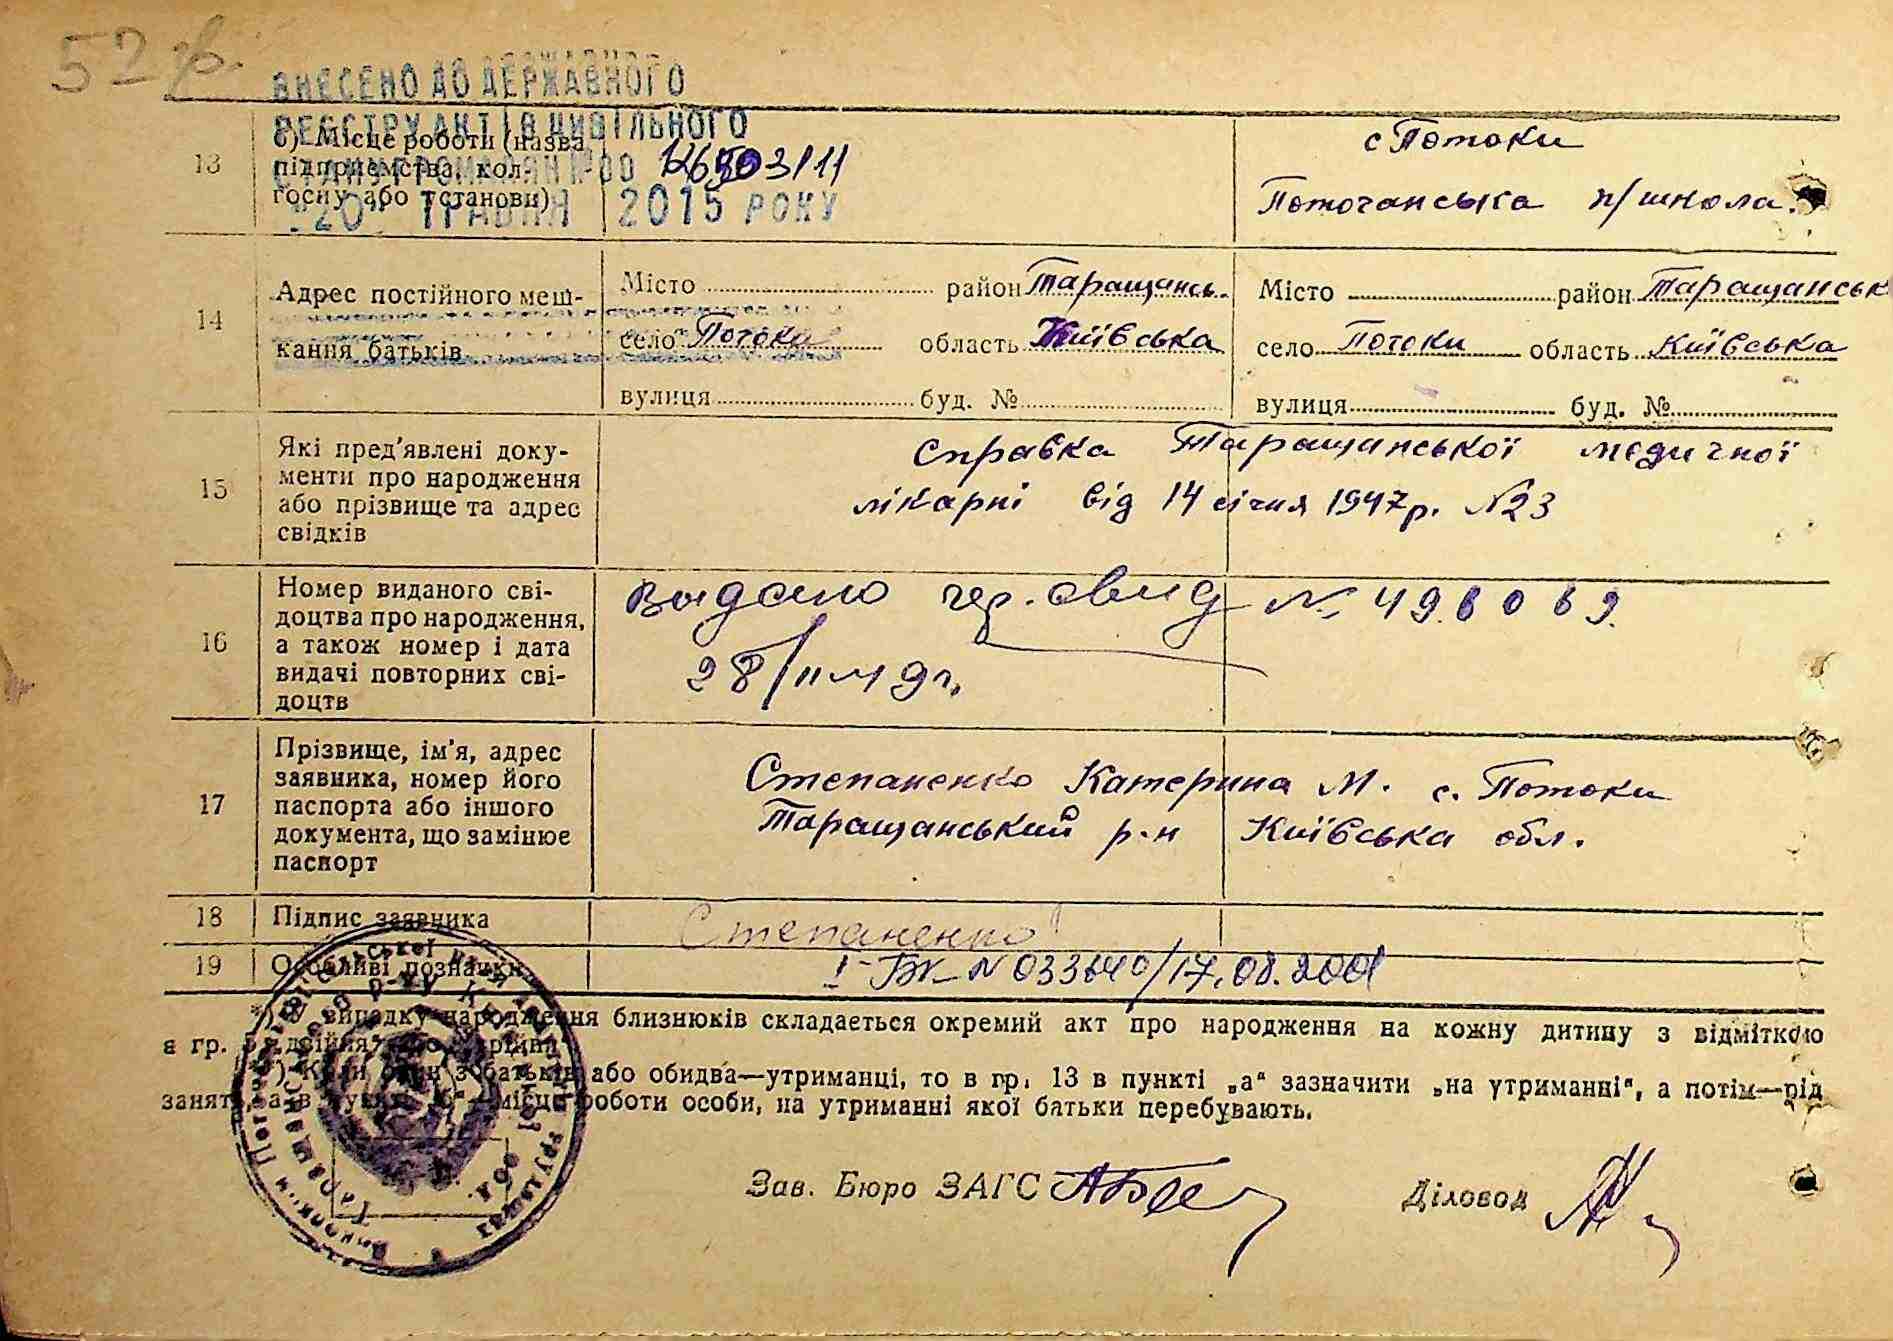 52 зв.
ВНЕСЕНО ДО ДЕРЖАВНОГО
РЕЄСТРУ АКТІВ ЦИВІЛЬНОГО
СТАНУ ГРОМАДЯН №00
"20" ТРАВНЯ 2015 РОКУ
13
б) Місце роботи (назва
підприємства, кол-
госпу або установи)
с Потоки
Поточанська п/школа.
14
Адрес постійного меш-
кання батьків
Місто район Таращансь.
село Потоки область Київська
вулиця буд. №
Місто район Таращанськ
село Потоки область Київська
вулиця буд. №
15
Які пред'явлені доку-
менти про народження
або прізвище та адрес
свідків
Справка Таращанської медичної
лікарні від 14 січня 1947 р. №23
16
Номер виданого сві-
доцтва про народження,
а також номер і дата
видачі повторних сві-
доцтв
Видано
28/II
17
Прізвище, ім'я, адрес
заявника, номер його
паспорта або іншого
документа, що замінює
паспорт
Степаненко Катерина М. с. Потоки
Таращанський р-н Київська обл.
18 Підпис заявника
Степаненко
19 Особливі позначки
17.08.2001
*) У випадку народження близнюків складається окремий акт про народження на кожну дитину з відміткою
в гр.
Коли один з батьків або обидва—утриманці, то в гр. 13 в пункті „а" зазначити „на утриманні", а потім—рід
занять, а в пункті „б"—місце роботи особи, на утриманні якої батьки перебувають.
Зав. Бюро ЗАГС
Діловод